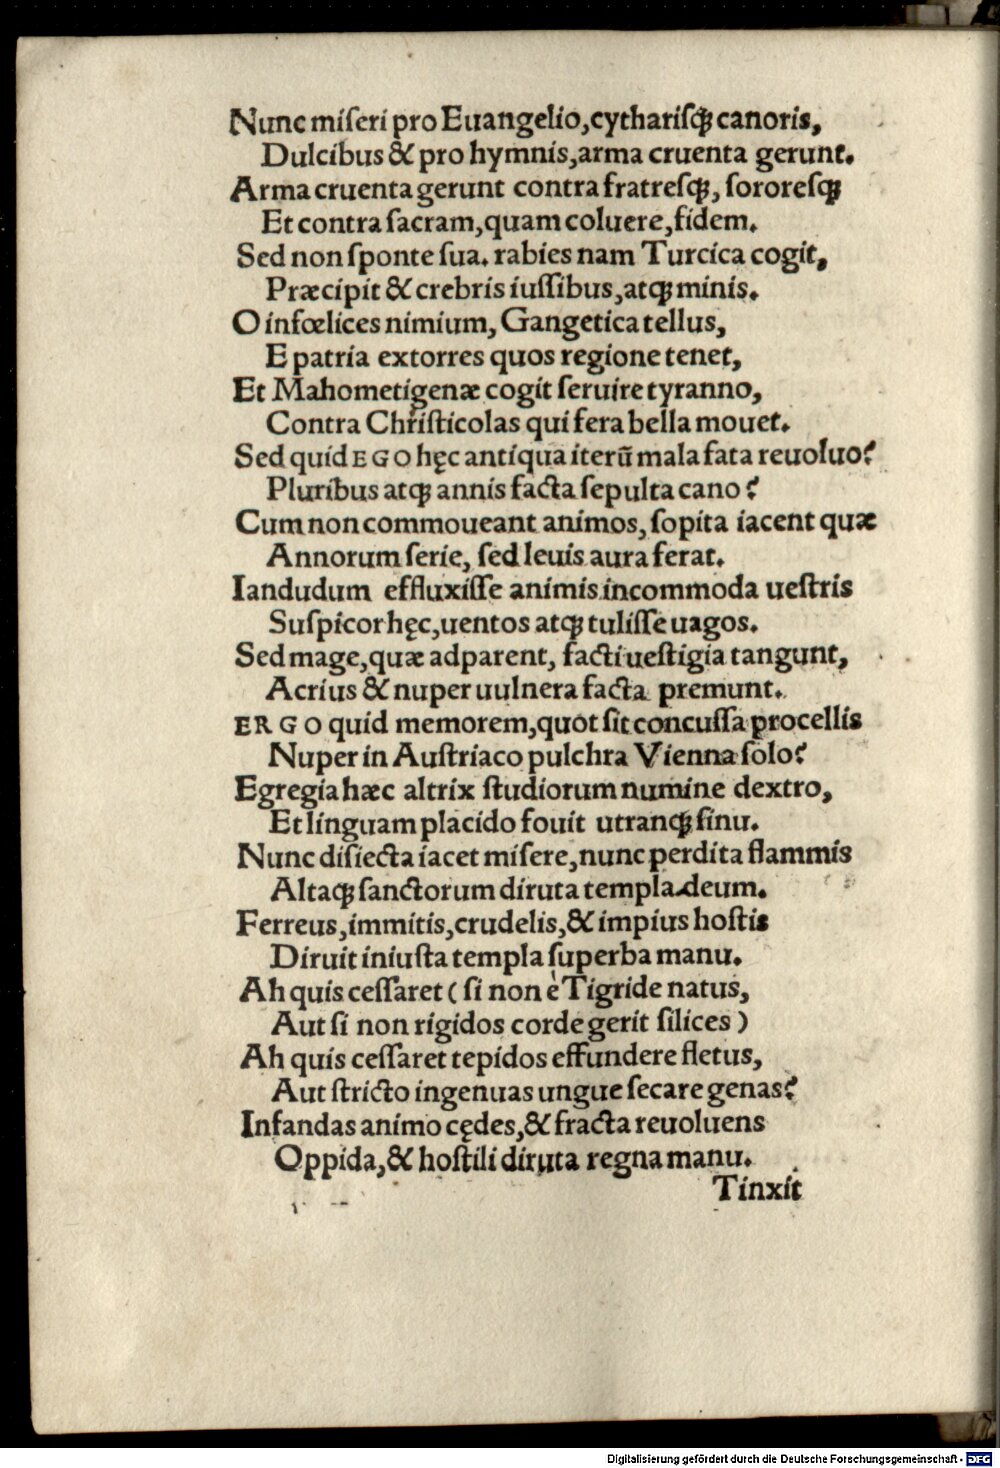 Nunc miſeri pro Euangelio,cythariſqꝫ canoris,
Dulcibus & pro hymnis,arma cruenta gerunt.
Arma cruenta gerunt contra fratreſqꝫ, ſororeſqꝫ
Et contra ſacram,quam coluere,fidem.
Sed non ſponte ſua. rabies nam Turcica cogit,
Præcipit & crebris iuſſibus,atqꝫ minis.
O infœlices nimium, Gangetica tellus,
E patria extorres quos regione tenet,
Et Mahometigenæ cogit ſeruire tyranno,
Contra Chriſticolas qui fera bella mouet.
Sed quid EGO hęc antiqua iterū mala fata reuoluo?
Pluribus atqꝫ annis facta ſepulta cano?
Cum non commoueant animos, ſopita iacent quæ
Annorum ſerie, ſed leuis aura ferat.
Iandudum effluxiſſe animis incommoda ueſtris
Suſpicor hęc,uentos atqꝫ tuliſſe uagos.
Sed mage,quæ adparent, facti ueſtigia tangunt,
Acrius & nuper uulnera facta premunt.
ERGO quid memorem,quot ſit concuſſa procellis
Nuper in Auſtriaco pulchra Vienna ſolo?
Egregia hæc altrix ſtudiorum numine dextro,
Et linguam placido fouit utranqꝫ ſinu.
Nunc diſiecta iacet miſere,nunc perdita flammis
Altaqꝫ ſanctorum diruta templa deum.
Ferreus,immitis,crudelis,& impius hoſtis
Diruit iniuſta templa ſuperba manu.
Ah quis ceſſaret ( ſi non è Tigride natus,
Aut ſi non rigidos corde gerit ſilices )
Ah quis ceſſaret tepidos effundere fletus,
Aut ſtricto ingenuas ungue ſecare genas?
Infandas animo cędes,& fracta reuoluens
Oppida,& hoſtili diruta regna manu.
Tinxit
Digitalisierung gefördert durch die Deutsche Forschungsgemeinschaft - DFG